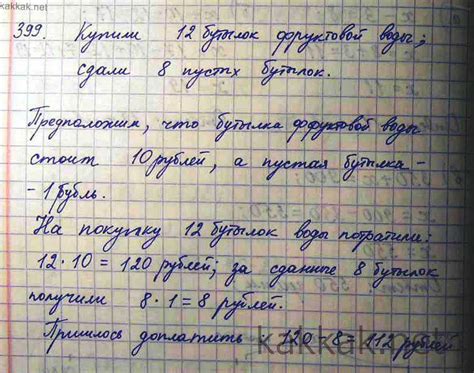 kakkak.net
399. Купили 12 бутылок фруктовой воды;
сдали 8 пустых бутылок.
Предположим, что бутылка фруктовой воды
стоит 10 рублей, а пустая бутылка -
- 1 рубль.
На покупку 12 бутылок воды потратили:
12 · 10 = 120 рублей; за сданные 8 бутылок
получили 8 · 1 = 8 рублей.
Пришлось доплатить 120 - 8 = 112 рублей
kakkak.net